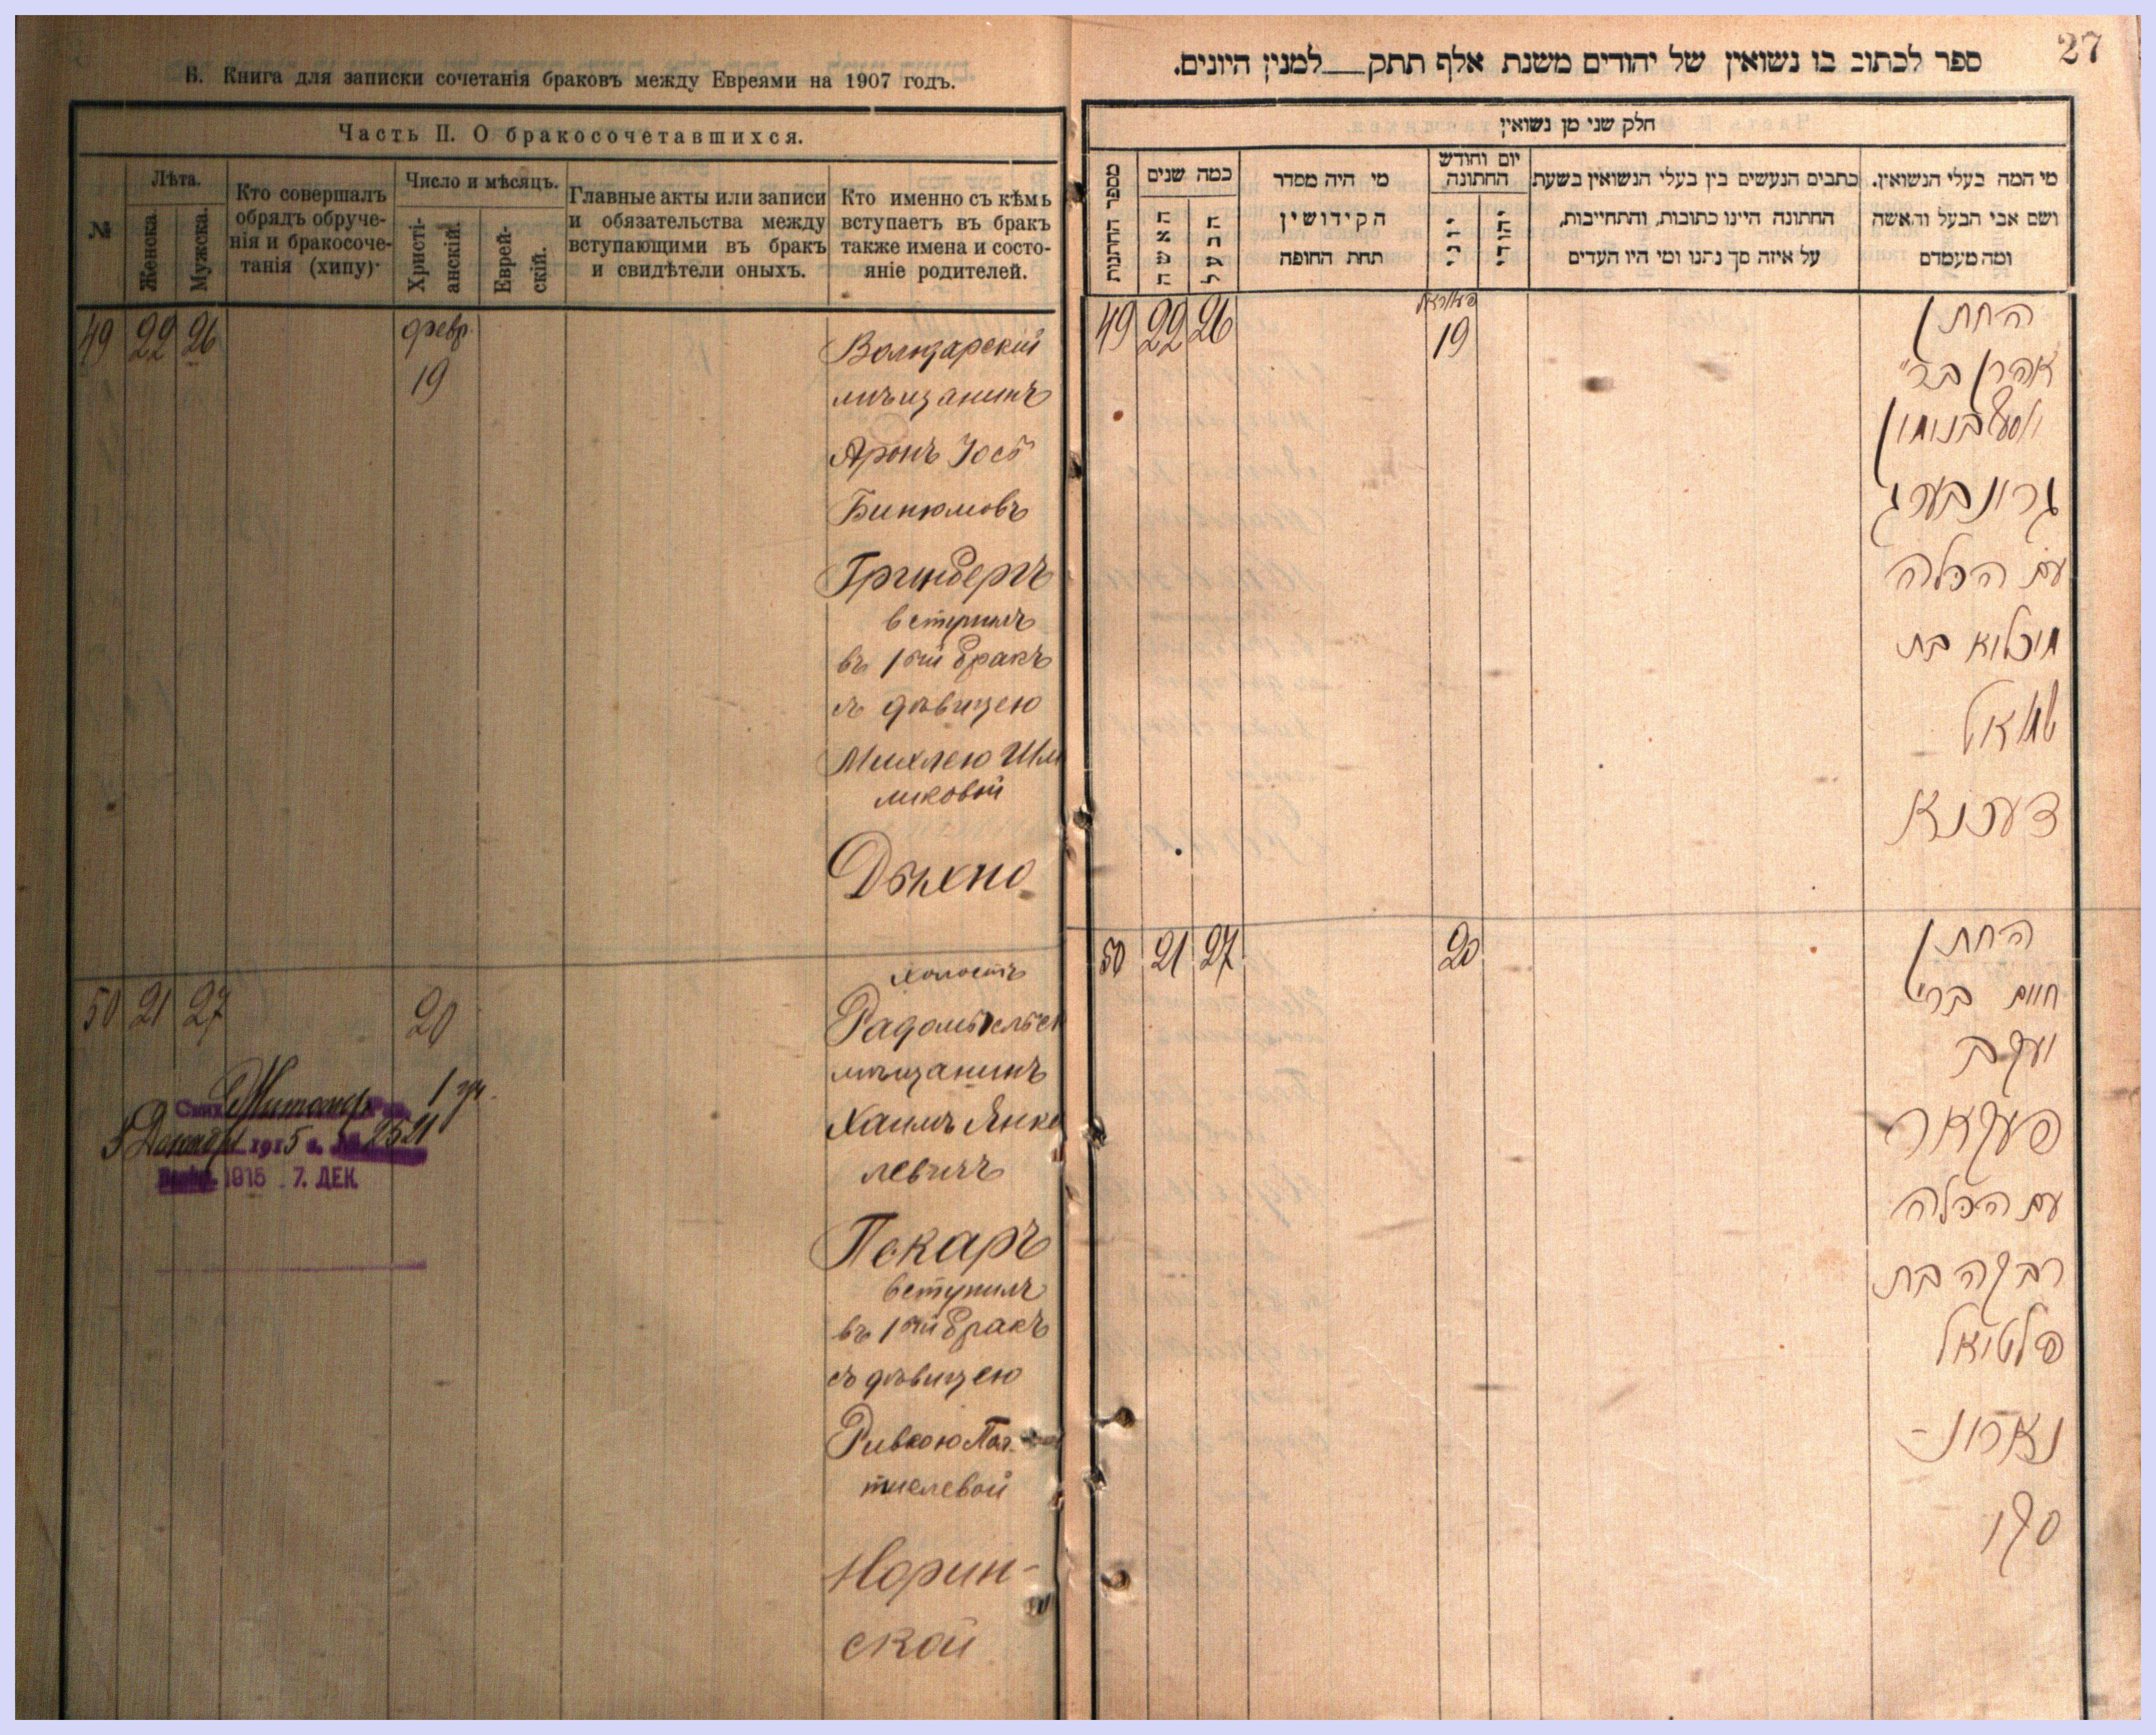 В. Книга для записки сочетанія браковъ между Евреями на 1907 годъ.
Часть II. О бракосочетавшихся.
№
Лѣта.
Женска.
Мужска.
Кто совершалъ
обрядъ обруче-
нія и бракосоче-
танія (хипу)·
Число и мѣсяцъ.
Христі-
анскій.
Еврей-
скій.
Главные акты или записи
и обязательства между
вступающими въ бракъ
и свидѣтели оныхъ.
Кто именно съ кѣмъ
вступаетъ въ бракъ
также имена и состо-
яніе родителей.
49 22 26
февр.
19
мѣщанинъ
Аронъ Іос
Бинюмовъ
Гринбергъ
вступилъ
въ 1ый бракъ
съ дѣвицею
Михлею Шм
ликовой
Дыхно
50 21 27
20
холостъ
Радомысльск
мѣщанинъ
Хаимъ Янке
левичъ
Пекаръ
вступилъ
въ 1ый бракъ
съ дѣвицею
Ривкою Пал
тиелевой
Норин-
ской
Житомір
5 Декабр 1915 г. № 2521
1915 7. ДЕК.
27
ספר לכתוב בו נשואין של יהודים משנת אלף תתק__למנין היונים.
חלק שני מן נשואין
מספר החתונות
כמה שנים
האשה
הבעל
מי היה מסדר
הקידושין
תחת החופה
יום וחודש
החתונה
יוני
יהודי
כתבים הנעשים בין בעלי הנשואין בשעת
החתונה היינו כתובות, והתחייבות,
על איזה סך נתנו ומי היו העדים
מי המה בעלי הנשואין.
ושם אבי הבעל והאשה
ומה מעמדם
49 22 26
19
החתן
אהרן בר׳
גרונבערג
עם הכלה
מיכליא בת
דעכנא
50 21 27
20
החתן
חיים בר׳
יעקב
פעקאר
עם הכלה
רבקה בת
פלטיאל
נארונ-
סקי